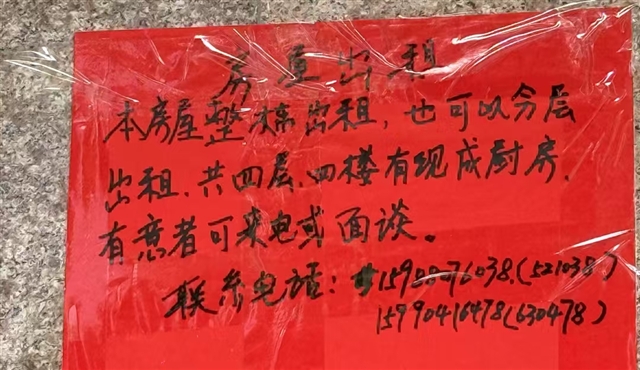 房屋出租
本房屋整栋出租,也可以分层
出租、共四层、四楼有现成厨房、
有意者可来电或面谈。
联系电话:15988076038.(521038)
15990416478(630478)